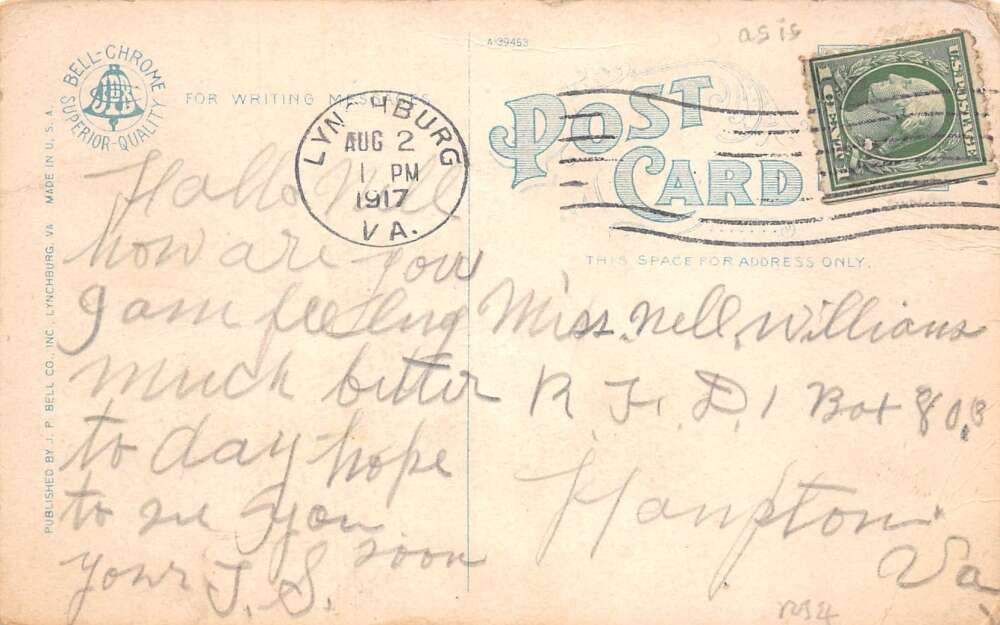 as is
A-39453
BELL-CHROME
SUPERIOR-QUALITY
FOR WRITING MESSAGES
LYNCHBURG
AUG 2
1 PM
1917
VA.
POST
CARD
U.S. POSTAGE
1 CENT 1
THIS SPACE FOR ADDRESS ONLY.
PUBLISHED BY J. P. BELL CO., INC. LYNCHBURG, VA MADE IN U. S. A.
Hallo Nell
how are you
I am feeling
much better
to day hope
to see you
soon
your J. S.
Miss. Nell. Williams
R F. D. 1 Box 80,B
Hampton
Va